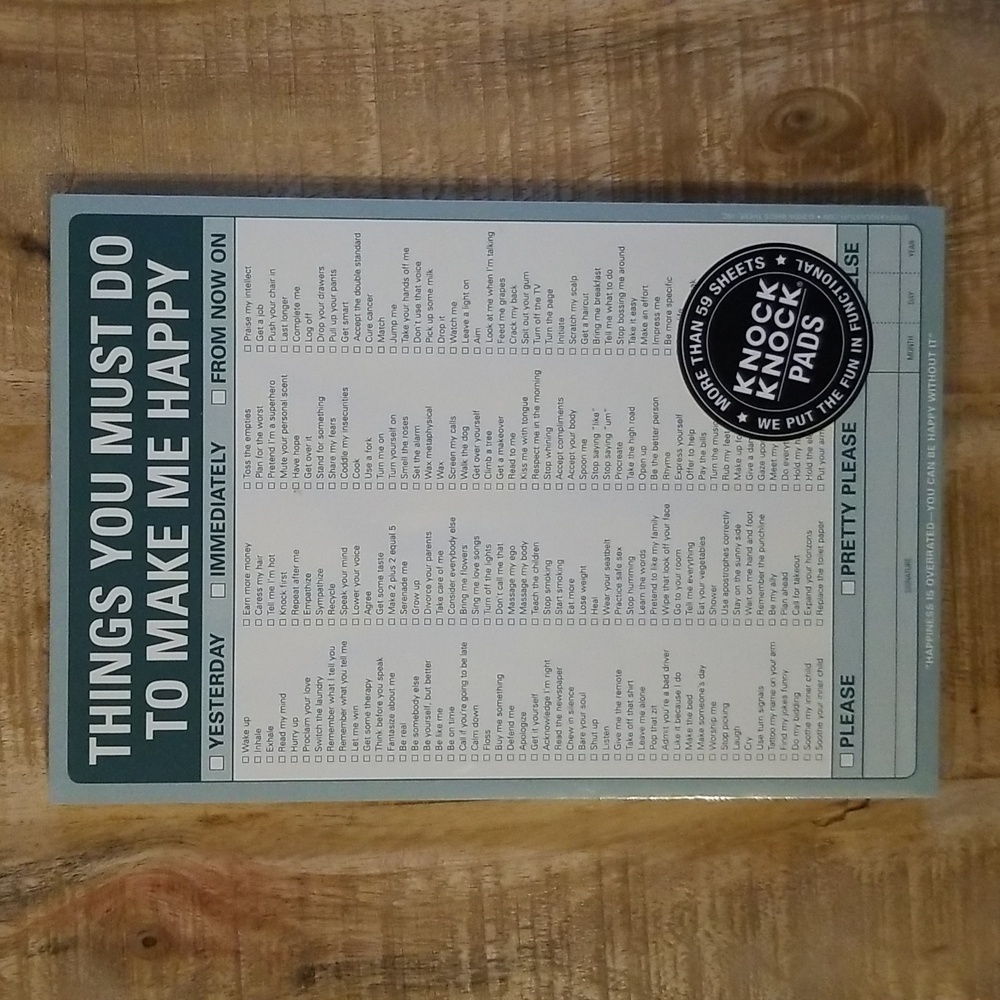 THINGS YOU MUST DO
TO MAKE ME HAPPY
YESTERDAY
IMMEDIATELY
FROM NOW ON
Wake up
Inhale
Exhale
Read my mind
Hurry up
Proclaim your love
Switch the laundry
Remember what I tell you
Remember what you tell me
Let me win
Get some therapy
Think before you speak
Fantasize about me
Be real
Be somebody else
Be yourself, but better
Be like me
Be on time
Call if you're going to be late
Calm down
Floss
Buy me something
Defend me
Apologize
Get it yourself
Acknowledge I'm right
Read the newspaper
Chew in silence
Bare your soul
Shut up
Listen
Give me the remote
Take off that shirt
Leave me alone
Pop that zit
Admit you're a bad driver
Like it because I do
Make the bed
Make someone's day
Worship me
Stop picking
Laugh
Cry
Use turn signals
Tattoo my name on your arm
Find my jokes funny
Do my bidding
Soothe my inner child
Soothe your inner child
Earn more money
Caress my hair
Tell me I'm hot
Knock first
Repeat after me
Empathize
Sympathize
Recycle
Speak your mind
Lower your voice
Agree
Get some taste
Make 2 plus 2 equal 5
Serenade me
Grow up
Divorce your parents
Take care of me
Consider everybody else
Bring me flowers
Sing me love songs
Turn off the lights
Don't call me that
Massage my ego
Massage my body
Teach the children
Stop smoking
Start smoking
Eat more
Lose weight
Heal
Wear your seatbelt
Practice safe sex
Stop humming
Learn the words
Pretend to like my family
Wipe that look off your face
Go to your room
Tell me everything
Eat your vegetables
Shower
Use apostrophes correctly
Stay on the sunny side
Wait on me hand and foot
Remember the punchline
Be my ally
Plan ahead
Call for takeout
Expand your horizons
Replace the toilet paper
Toss the empties
Plan for the worst
Pretend I'm a superhero
Mute your personal scent
Have hope
Get over it
Stand for something
Share my fears
Coddle my insecurities
Cook
Use a fork
Turn me on
Turn yourself on
Smell the roses
Set the alarm
Wax metaphysical
Wax
Screen my calls
Walk the dog
Get over yourself
Climb a tree
Get a makeover
Read to me
Kiss me with tongue
Respect me in the morning
Stop whining
Accept compliments
Accept your body
Spoon me
Stop saying "like"
Stop saying "um"
Procreate
Take the high road
Open up
Be the better person
Rhyme
Express yourself
Offer to help
Pay the bills
Turn the mus
Rub my feet
Make up
Give a dam
Gaze upon
Meet my
Do everyt
Hold my
Hold the e
Put your arm
Praise my intellect
Get a job
Push your chair in
Last longer
Complete me
Log off
Drop your drawers
Pull up your pants
Get smart
Accept the double standard
Cure cancer
Match
Jump me
Take your hands off me
Don't use that voice
Pick up some milk
Drop it
Watch me
Leave a light on
Ask
Look at me when I'm talking
Feed me grapes
Crack my back
Spit out your gum
Turn off the TV
Turn the page
Intuit
Scratch my scalp
Get a haircut
Bring me breakfast
Tell me what to do
Stop bossing me around
Take it easy
Make an effort
Impress me
Be more specific
MORE THAN 59 SHEETS
KNOCK
KNOCK®
PADS
WE PUT THE FUN IN FUNCTIONAL
PLEASE
PRETTY PLEASE
ELSE
SIGNATURE
MONTH
DAY
YEAR
"HAPPINESS IS OVERRATED—YOU CAN BE HAPPY WITHOUT IT"